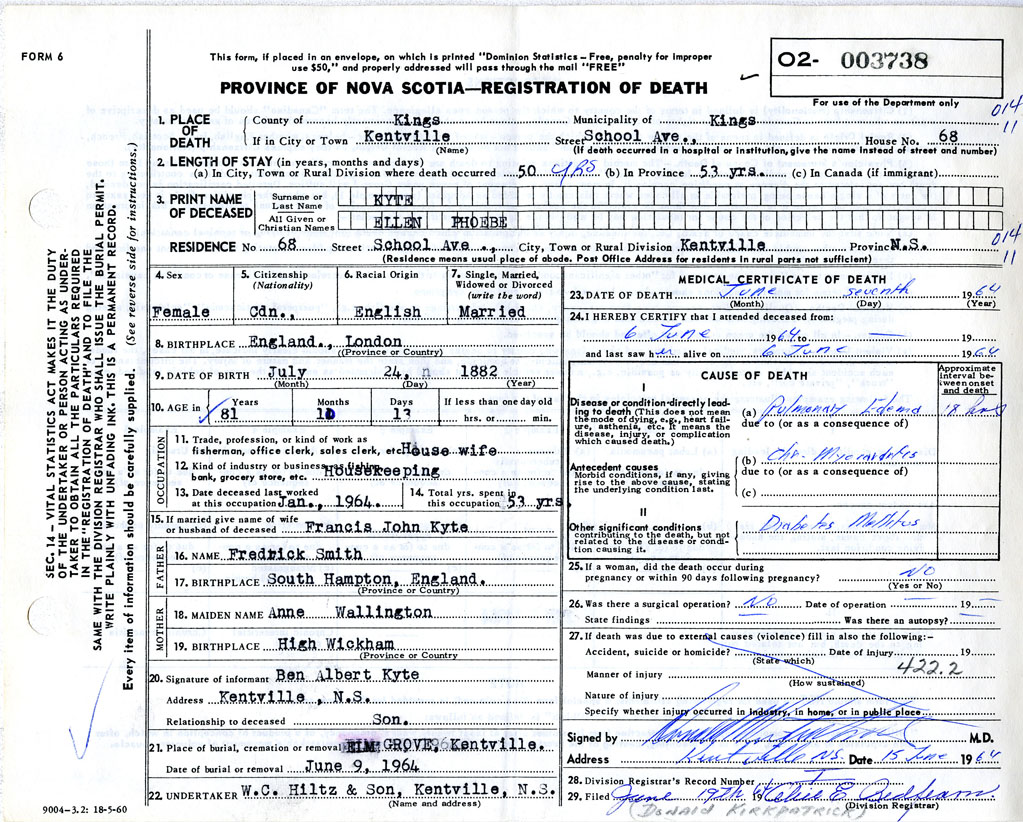 FORM 6
This form, if placed in an envelope, on which is printed "Dominion Statistics – Free, penalty for improper
use $50," and properly addressed will pass through the mail "FREE"
PROVINCE OF NOVA SCOTIA—REGISTRATION OF DEATH
O2- 003738
For use of the Department only
014
11
1. PLACE OF DEATH
County of Kings Municipality of Kings
If in City or Town Kentville Street School Ave., House No. 68
(Name) (If death occurred in a hospital or institution, give the name instead of street and number)
2. LENGTH OF STAY (in years, months and days)
(a) In City, Town or Rural Division where death occurred 50 yrs (b) In Province 53 yrs. (c) In Canada (if immigrant)
3. PRINT NAME OF DECEASED
Surname or Last Name KYTE
All Given or Christian Names ELLEN PHOEBE
RESIDENCE No 68 Street School Ave ., City, Town or Rural Division Kentville Provinc N.S.
014
11
(Residence means usual place of abode. Post Office Address for residents in rural parts not sufficient)
4. Sex
Female
5. Citizenship
(Nationality)
Cdn.,
6. Racial Origin
English
7. Single, Married,
Widowed or Divorced
(write the word)
Married
8. BIRTHPLACE England., London
(Province or Country)
9. DATE OF BIRTH July 24, n 1882
(Month) (Day) (Year)
10. AGE in
Years Months Days If less than one day old
81 10 13 hrs. or min.
OCCUPATION
11. Trade, profession, or kind of work as
fisherman, office clerk, sales clerk, etc. House wife
12. Kind of industry or business as fishing,
bank, grocery store, etc. Housekeeping
13. Date deceased last worked
at this occupation Jan., 1964.
14. Total yrs. spent in
this occupation 53 yrs
15. If married give name of wife
or husband of deceased Francis John Kyte
FATHER
16. NAME Fredrick Smith
17. BIRTHPLACE South Hampton, England.
(Province or Country)
MOTHER
18. MAIDEN NAME Anne Wallington
19. BIRTHPLACE High Wickham
(Province or Country
20. Signature of informant Ben Albert Kyte
Address Kentville , N.S.
Relationship to deceased Son.
21. Place of burial, cremation or removal ELM GROVE, Kentville.
Date of burial or removal June 9, 1964
22. UNDERTAKER W.C. Hiltz & Son, Kentville, N.S.
(Name and address)
MEDICAL CERTIFICATE OF DEATH
23. DATE OF DEATH June seventh 1964
(Month) (Day) (Year)
24. I HEREBY CERTIFY that I attended deceased from:
6 June 1964 to — 19
and last saw her alive on 6 June 1964
CAUSE OF DEATH
Approximate interval between onset and death
I
Disease or condition directly leading to death (This does not mean the mode of dying, e.g., heart failure, asthenia, etc. It means the disease, injury, or complication which caused death.)
(a) Pulmonary Edema 18 hrs
due to (or as a consequence of)
Antecedent causes
Morbid conditions, if any, giving rise to the above cause, stating the underlying condition last.
(b) Chr. Myocarditis
due to (or as a consequence of)
(c)
II
Other significant conditions
contributing to the death, but not related to the disease or condition causing it.
Diabetes Mellitus
25. If a woman, did the death occur during
pregnancy or within 90 days following pregnancy? NO
(Yes or No)
26. Was there a surgical operation? NO Date of operation — 19 —
State findings — Was there an autopsy? —
27. If death was due to external causes (violence) fill in also the following:–
Accident, suicide or homicide? Date of injury 19
(State which)
Manner of injury 422.2
(How sustained)
Nature of injury
Specify whether injury occurred in industry, in home, or in public place
Signed by M.D.
Address Kentville N.S. Date 15 June 1964
28. Division Registrar's Record Number
29. Filed June 19th 19
(Division Registrar)
(DONALD KIRKPATRICK)
9004–3.2: 18-5-60
SEC. 14 – VITAL STATISTICS ACT MAKES IT THE DUTY
OF THE UNDERTAKER OR PERSON ACTING AS UNDER-
TAKER TO OBTAIN ALL THE PARTICULARS REQUIRED
IN THE "REGISTRATION OF DEATH" AND TO FILE THE
SAME WITH THE DIVISION REGISTRAR WHO SHALL ISSUE THE BURIAL PERMIT.
WRITE PLAINLY WITH UNFADING INK. THIS IS A PERMANENT RECORD.
Every item of information should be carefully supplied. (See reverse side for instructions.)